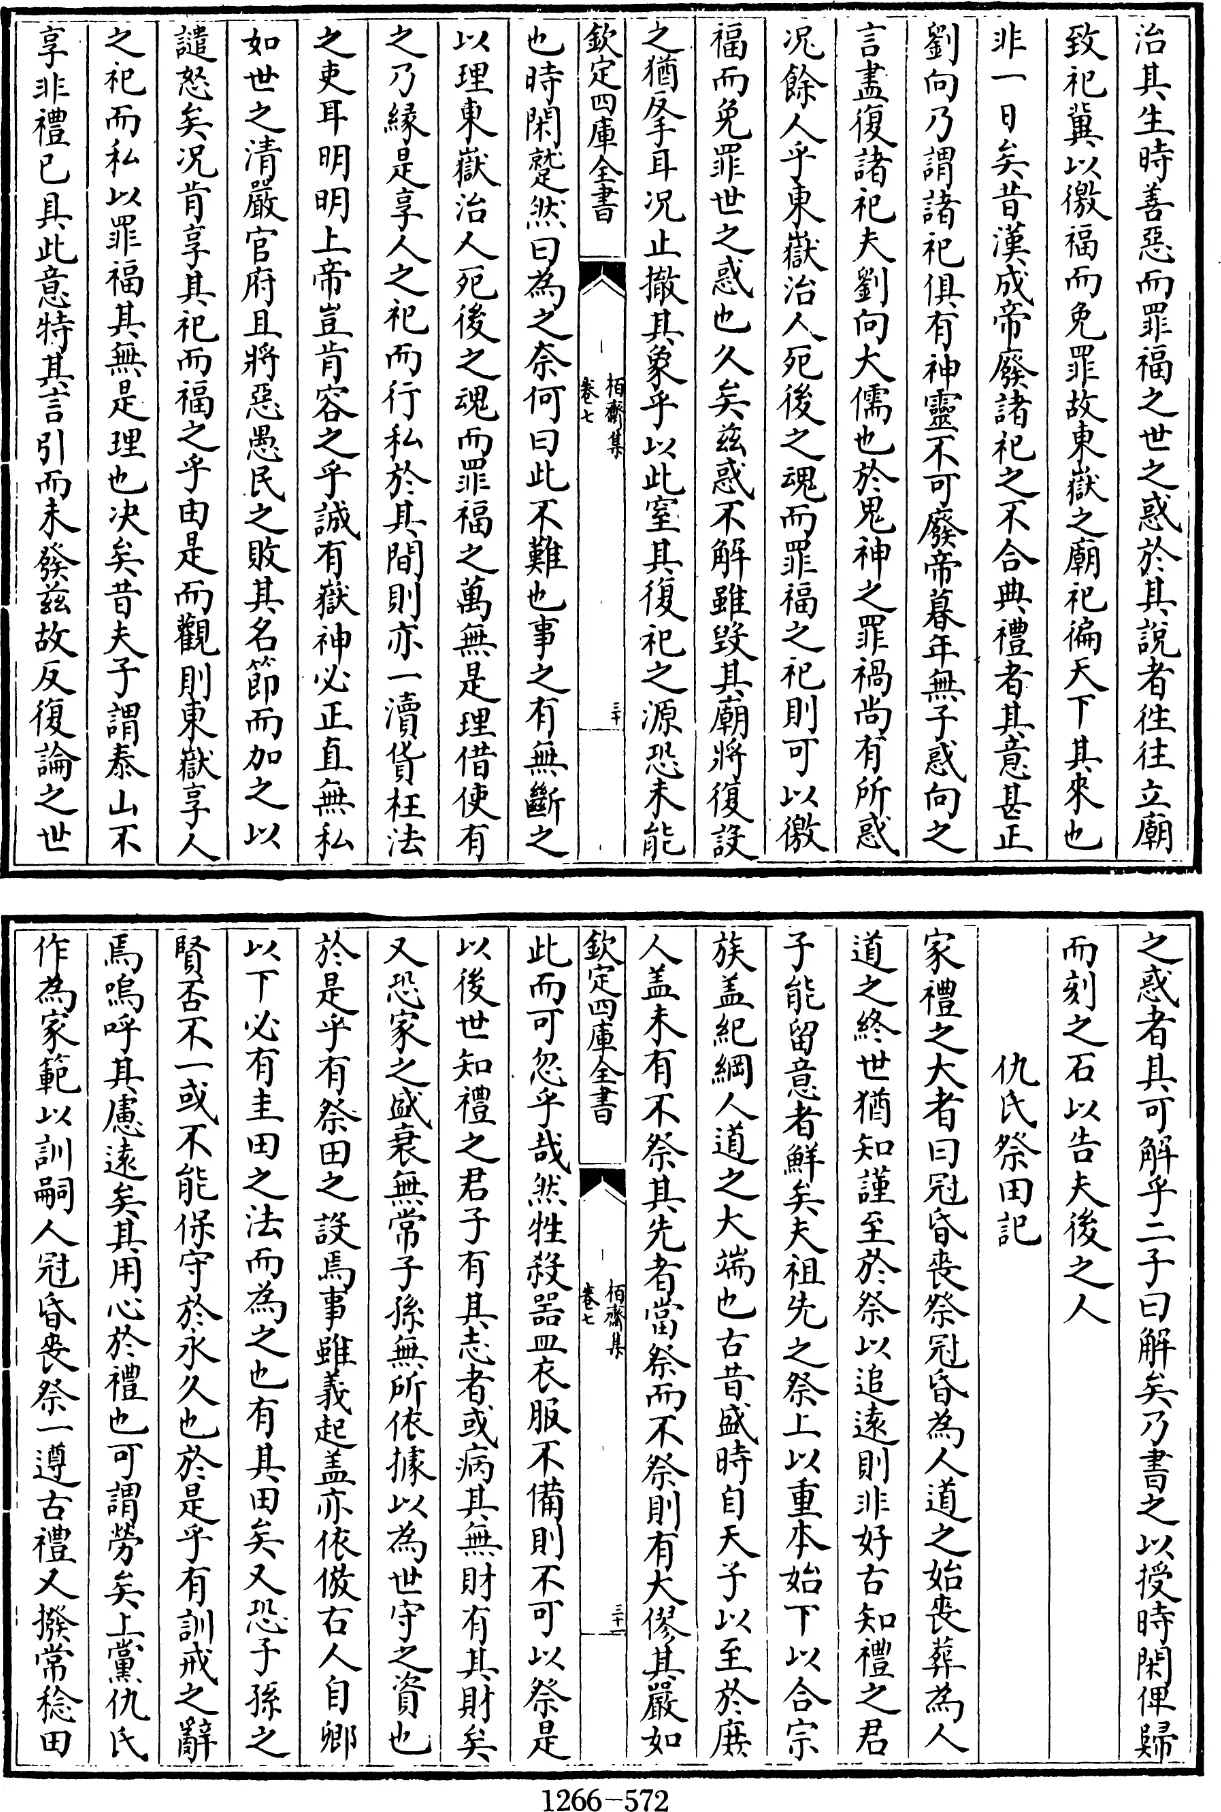 治其生時善惡而罪福之世之惑於其說者徃往立廟
致祀冀以徼福而免罪故東嶽之廟祀徧天下其來也
非一日矣昔漢成帝廢諸祀之不合典禮者其意甚正
劉向乃謂諸祀俱有神靈不可廢帝暮年無子惑向之
言盡復諸祀夫劉向大儒也於鬼神之罪禍尚有所惑
况餘人乎東嶽治人死後之魂而罪福之祀則可以徼
福而免罪世之惑也久矣兹惑不解雖毀其廟將復設
之猶反手耳况止撤其象乎以此窒其復祀之源恐未能
欽定四庫全書
栢齋集
卷七
三十
也時閑蹵然曰為之柰何曰此不難也事之有無斷之
以理東嶽治人死後之魂而罪福之萬無是理借使有
之乃緣是享人之祀而行私於其間則亦一瀆貨枉法
之吏耳明明上帝豈肯容之乎誠有嶽神必正直無私
如世之清嚴官府且將惡愚民之敗其名節而加之以
譴怒矣况肯享其祀而福之乎由是而觀則東嶽享人
之祀而私以罪福其無是理也决矣昔夫子謂泰山不
享非禮已具此意特其言引而未發兹故反復論之世
之惑者其可解乎二子曰解矣乃書之以授時閑俾歸
而刻之石以告夫後之人
仇氏祭田記
家禮之大者曰冠昏喪祭冠昏為人道之始喪葬為人
道之終世猶知謹至於祭以追遠則非好古知禮之君
子能留意者鮮矣夫祖先之祭上以重本始下以合宗
族盖紀綱人道之大端也古昔盛時自天子以至於庶
人盖未有不祭其先者當祭而不祭則有大僇其嚴如
欽定四庫全書
栢齋集
卷七
三十一
此而可忽乎哉然牲殺器皿衣服不備則不可以祭是
以後世知禮之君子有其志者或病其無財有其財矣
又恐家之盛衰無常子孫無所依據以為世守之資也
於是乎有祭田之設焉事雖義起盖亦依倣古人自卿
以下必有圭田之法而為之也有其田矣又恐子孫之
賢否不一或不能保守於永久也於是乎有訓戒之辭
焉嗚呼其慮遠矣其用心於禮也可謂勞矣上黨仇氏
作為家範以訓嗣人冠昏喪祭一遵古禮又撥常稔田
1266-572